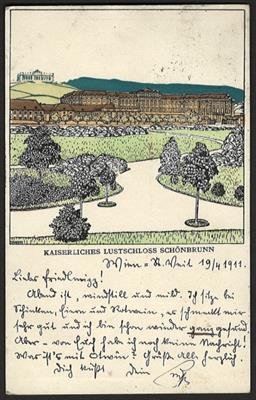 KAISERLICHES LUSTSCHLOSS SCHÖNBRUNN
Wien = St. Veit 19/4 1911.
Lieber Friedl
Abend ist, windstill und mild. Ich sitze bei
Schinken, Eiern und Rotwein, es schmeckt mir
sehr gut und ich bin schon wieder ganz gesund.
Aber – von Euch habe ich noch keine Nachricht!
Was ist's mit Otwin? Grüße Alle herzlich.
Dich küßt Dein